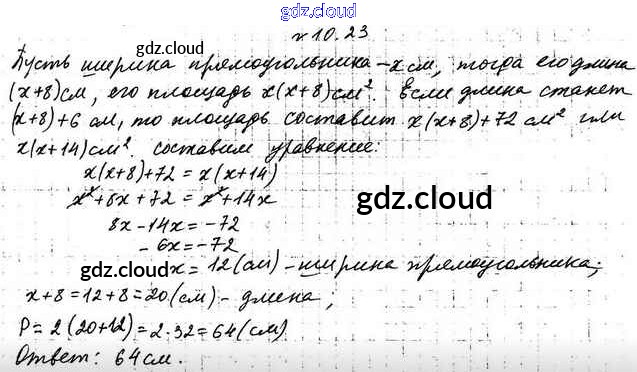 gdz.cloud
№10.23
gdz.cloud
Пусть ширина прямоугольника - x см, тогда его длина
(x+8)см, его площадь x(x+8)см². Если длина станет
(x+8)+6 см, то площадь составит x(x+8)+72 см² или
x(x+14)см². составим уравнение:
x(x+8)+72 = x(x+14)
x²+8x+72 = x²+14x
gdz.cloud
8x-14x=-72
-6x=-72
gdz.cloud x= 12(см) - ширина прямоугольника;
x+8=12+8=20(см) - длина;
P=2(20+12)=2·32=64(см)
Ответ: 64см.